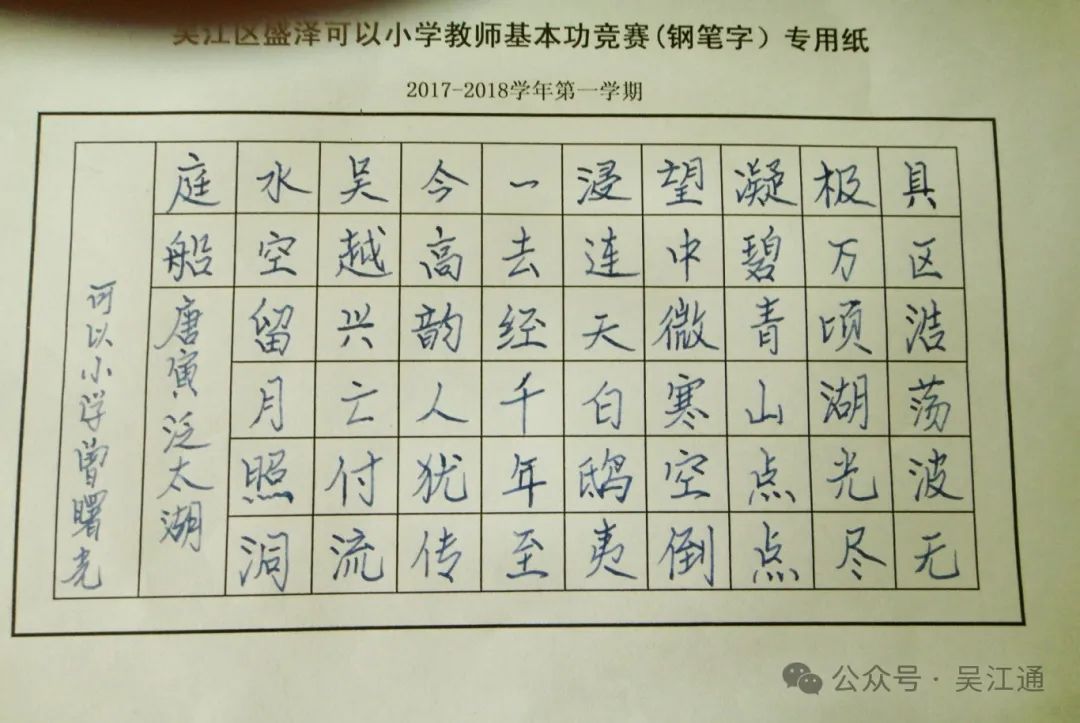 吴江区盛泽可以小学教师基本功竞赛(钢笔字）专用纸
2017-2018学年第一学期
具区浩荡波无
极万顷湖光尽
凝碧青山点点
望中微寒空倒
浸连天白鸱夷
一去经千年至
今高韵人犹传
吴越兴亡付流
水空留月照洞
庭船
唐寅泛太湖
可以小学曾曙光
公众号·吴江通